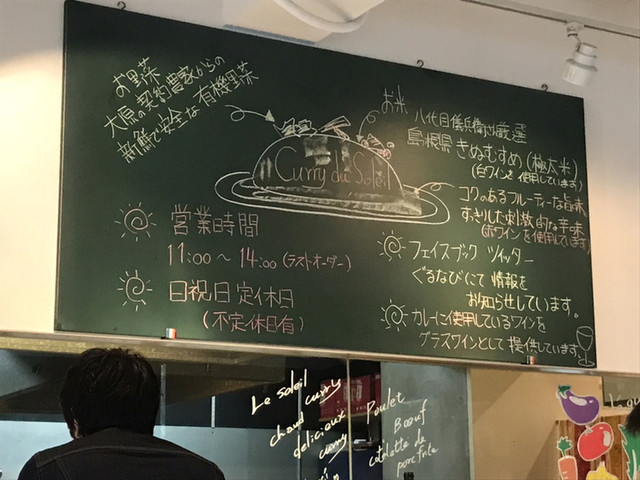 お野菜
大原の契約農家からの
新鮮で安全な有機野菜
お米
八代目儀兵衛の厳選
島根県 きぬむすめ(極太米)
(白ワインを使用しています)
コクのあるフルーティーな旨味、
すっきりした刺激的な辛味
(赤ワインを使用しています)
Curry du Soleil
営業時間
11:00〜14:00(ラストオーダー)
日祝日定休日
(不定休日有)
フェイスブック ツイッター
ぐるなびにて 情報を
お知らせしています。
カレーに使用しているワインを
グラスワインとして提供しています。
Le soleil
chaud curry
delicieux
curry
Poulet
Boeuf
cotolette de
porc frite